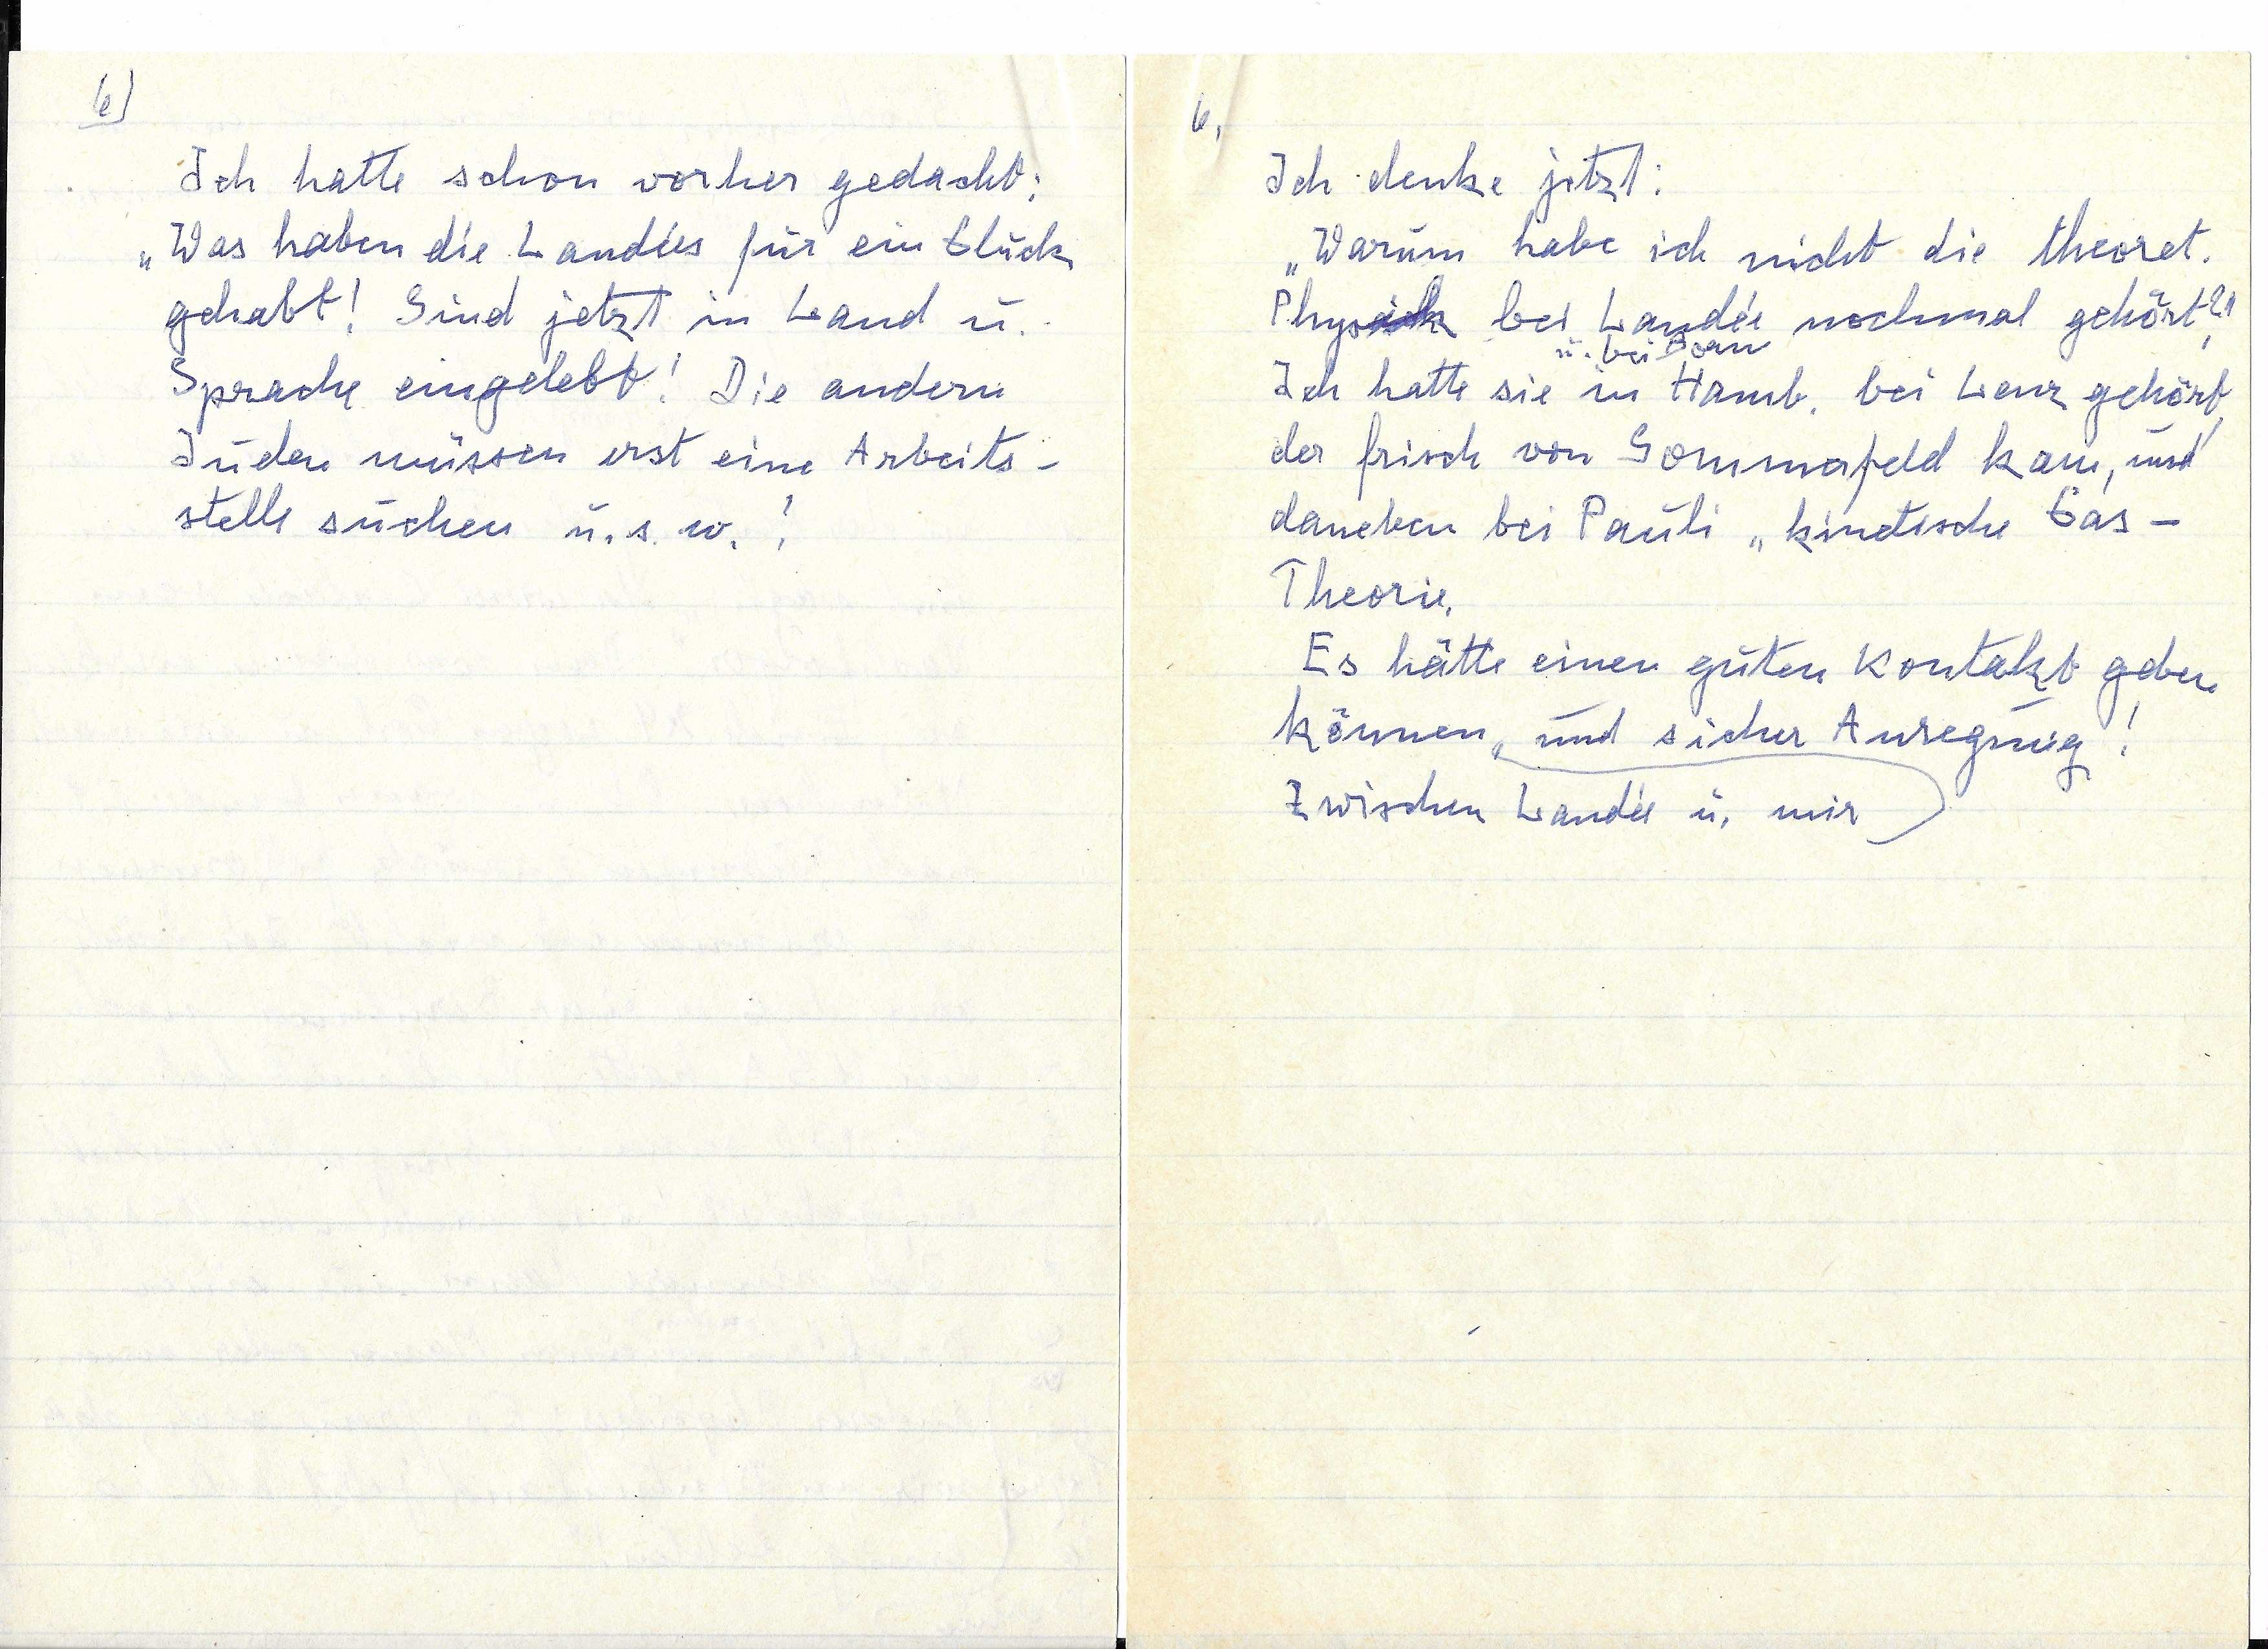 6)
Ich hatte schon vorher gedacht:
„Was haben die Landées für ein Glück
gehabt! Sind jetzt in Land u.
Sprache eingelebt! Die andern
Juden müssen erst eine Arbeits-
stelle suchen u.s.w.!
6.
Ich denke jetzt:
„Warum habe ich nicht die theoret.
Physik bei Landée nochmal gehört?"
u. bei Born
Ich hatte sie in Hamb. bei Lenz gehört,
der frisch von Sommerfeld kam, und
daneben bei Pauli „kinetische Gas-
Theorie.
Es hätte einen guten Kontakt geben
können, und sicher Anregung!
Zwischen Landée u. mir